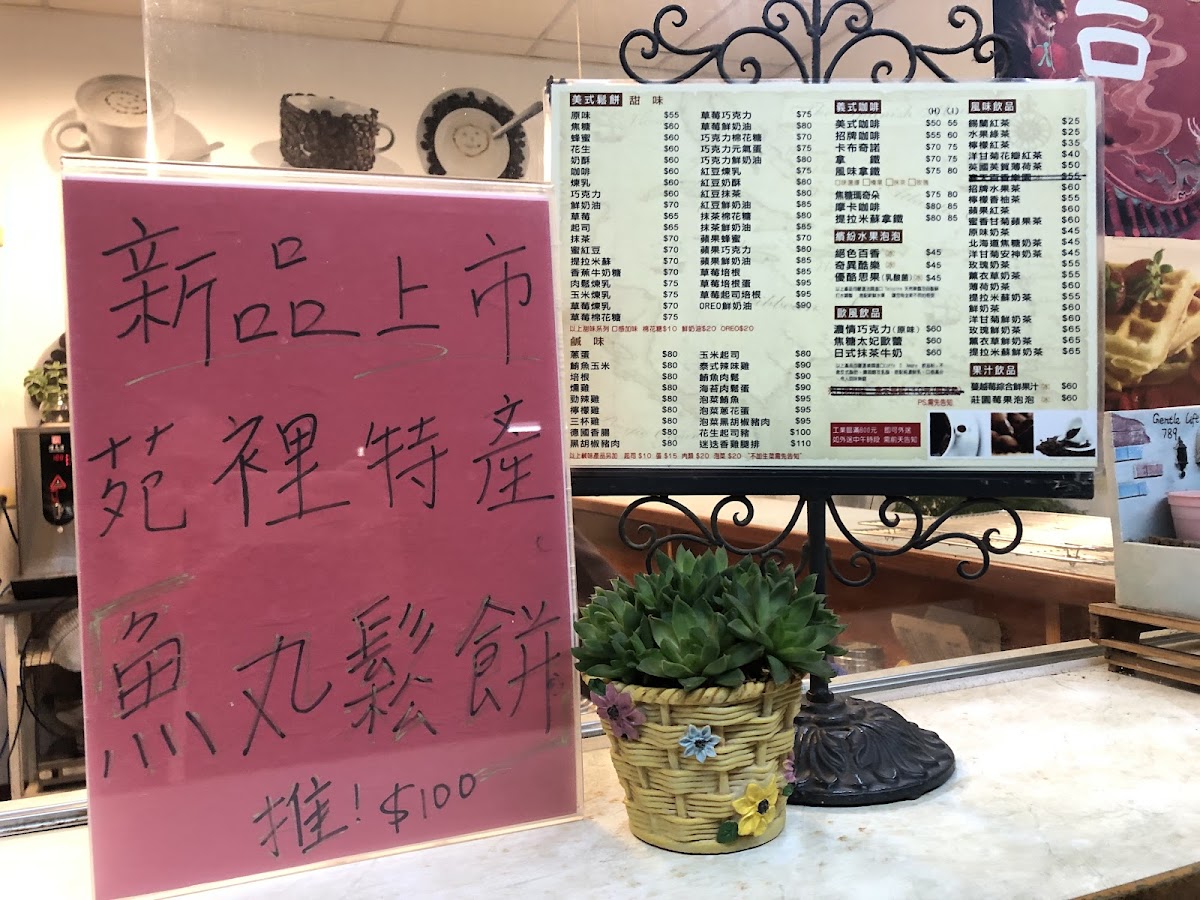 新品上市
苑裡特產
魚丸鬆餅
推! $100
美式鬆餅 甜 味
原味 $55
焦糖 $60
蜂蜜 $60
花生 $60
奶酥 $60
咖啡 $60
煉乳 $60
巧克力 $60
鮮奶油 $70
草莓 $65
起司 $65
抹茶 $70
蜜紅豆 $70
提拉米蘇 $70
香蕉牛奶糖 $70
肉鬆煉乳 $75
玉米煉乳 $75
草莓煉乳 $70
草莓棉花糖 $75
草莓巧克力 $75
草莓鮮奶油 $80
巧克力棉花糖 $70
巧克力元氣蛋 $75
巧克力鮮奶油 $80
紅豆煉乳 $75
紅豆奶酥 $80
紅豆抹茶 $80
紅豆鮮奶油 $85
抹茶棉花糖 $80
抹茶鮮奶油 $85
蘋果蜂蜜 $70
蘋果巧克力 $80
蘋果鮮奶油 $85
草莓培根 $85
草莓肉鬆蛋 $95
草莓起司培根 $95
OREO鮮奶油 $90
以上甜味系列 口感加味 棉花糖$10 鮮奶油$20 OREO$20
鹹 味
蔥蛋 $80
鮪魚玉米 $80
培根 $80
燻雞 $80
勁辣雞 $80
檸檬雞 $80
三杯雞 $80
德國香腸 $80
黑胡椒豬肉 $80
玉米起司 $80
泰式辣味雞 $90
鮪魚肉鬆 $90
海苔肉鬆蛋 $90
泡菜鮪魚 $90
泡菜蔥花蛋 $90
泡菜黑胡椒豬肉 $95
花生起司豬 $100
迷迭香雞腿排 $110
以上鹹味產品另加 起司 $10 蛋 $15 肉類 $20 泡菜 $20 "不加生菜需先告知"
義式咖啡 (H) (I)
美式咖啡 $50 55
招牌咖啡 $55 60
卡布奇諾 $70 75
拿 鐵 $70 75
風味拿鐵 $75 80
焦糖瑪奇朵 $75 80
摩卡咖啡 $80 85
提拉米蘇拿鐵 $80 85
繽紛水果泡泡
絕色百香 $45
奇異酷樂 $45
優酷思果(乳酸菌) $45
歐風飲品
濃情巧克力(原味) $60
焦糖太妃歐蕾 $60
日式抹茶牛奶 $60
PS.需先告知
工業區滿600元 即可外送
如外送中午時段 需前天告知
風味飲品
錫蘭紅茶 $25
水果綠茶 $25
檸檬紅茶 $35
洋甘菊花瓣紅茶 $40
英國芙賀薄荷茶 $50
$55
招牌水果茶 $60
檸檬香柚茶 $55
蘋果紅茶 $60
蜜香甘菊蘋果茶 $60
原味奶茶 $45
北海道焦糖奶茶 $60
洋甘菊安神奶茶 $55
玫瑰奶茶 $55
薰衣草奶茶 $55
薄荷奶茶 $60
提拉米穌奶茶 $55
鮮奶茶 $60
洋甘菊鮮奶茶 $65
玫瑰鮮奶茶 $65
薰衣草鮮奶茶 $65
提拉米穌鮮奶茶 $65
果汁飲品
蔓越莓綜合鮮果汁 $60
莊園莓果泡泡 $60
Gentle Life
789